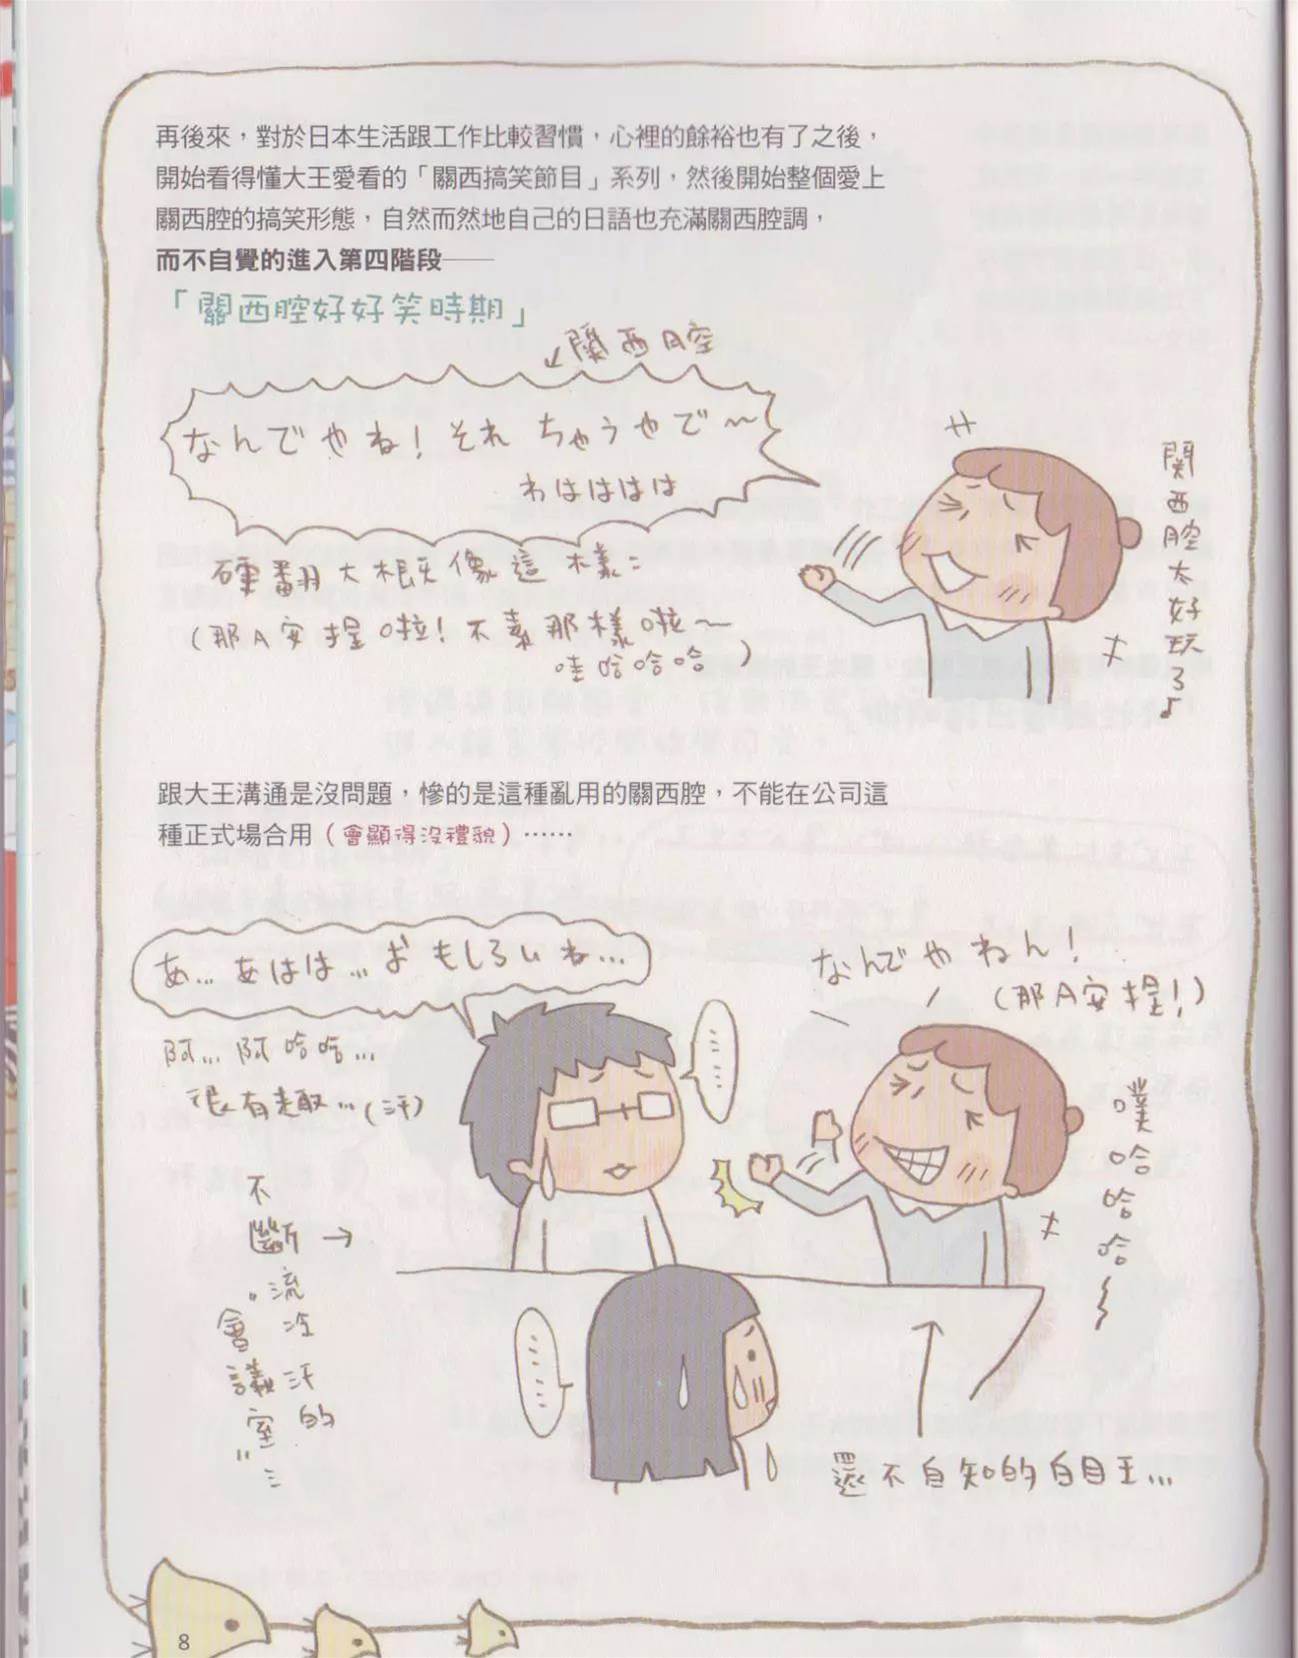 再後來，對於日本生活跟工作比較習慣，心裡的餘裕也有了之後，
開始看得懂大王愛看的「關西搞笑節目」系列，然後開始整個愛上
關西腔的搞笑形態，自然而然地自己的日語也充滿關西腔調，
而不自覺的進入第四階段——
「關西腔好好笑時期」
↙關西腔
なんでやね！それ ちゃうやで～
わはははは
硬翻大概像這樣：
(那A安捏啦！不素那樣啦～
哇哈哈哈)
関西腔太好玩了♪
跟大王溝通是沒問題，慘的是這種亂用的關西腔，不能在公司這
種正式場合用（會顯得沒禮貌）……
あ…あはは…おもしろいね…
阿…阿哈哈…
很有趣…(汗)
……
なんでやねん！
(那A安捏！)
噗哈哈哈～
不斷流冷汗的
會議室…
→
……
還不自知的白目王…
8